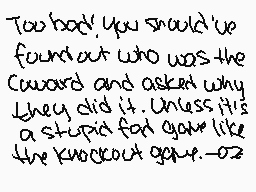 Too bad! You should've
found out who was the
Coward and asked why
they did it. Unless it's
a stupid fad game like
the Knockout game.-oz